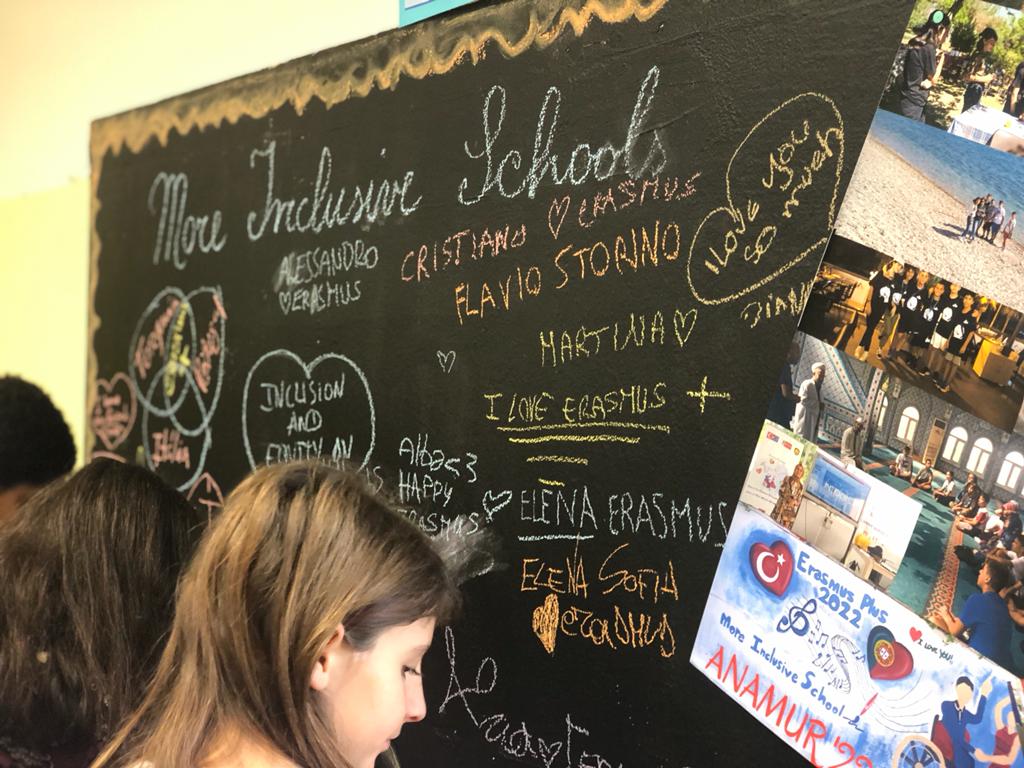 More Inclusive Schools
ALESSANDRO
♡ERASMUS
CRISTIANO ♡ ERASMUS
FLAVIO STORINO
I LOVE
YOU
SO
MARTINA♡
I LOVE ERASMUS +
INCLUSION
AND
EQUITY AN
Alba<3
HAPPY
ERASMUS♡
ELENA ERASMUS
ELENA SOFIA
Erasmus Plus
2022
More Inclusive School
I LOVE YOU!
ANAMUR '22